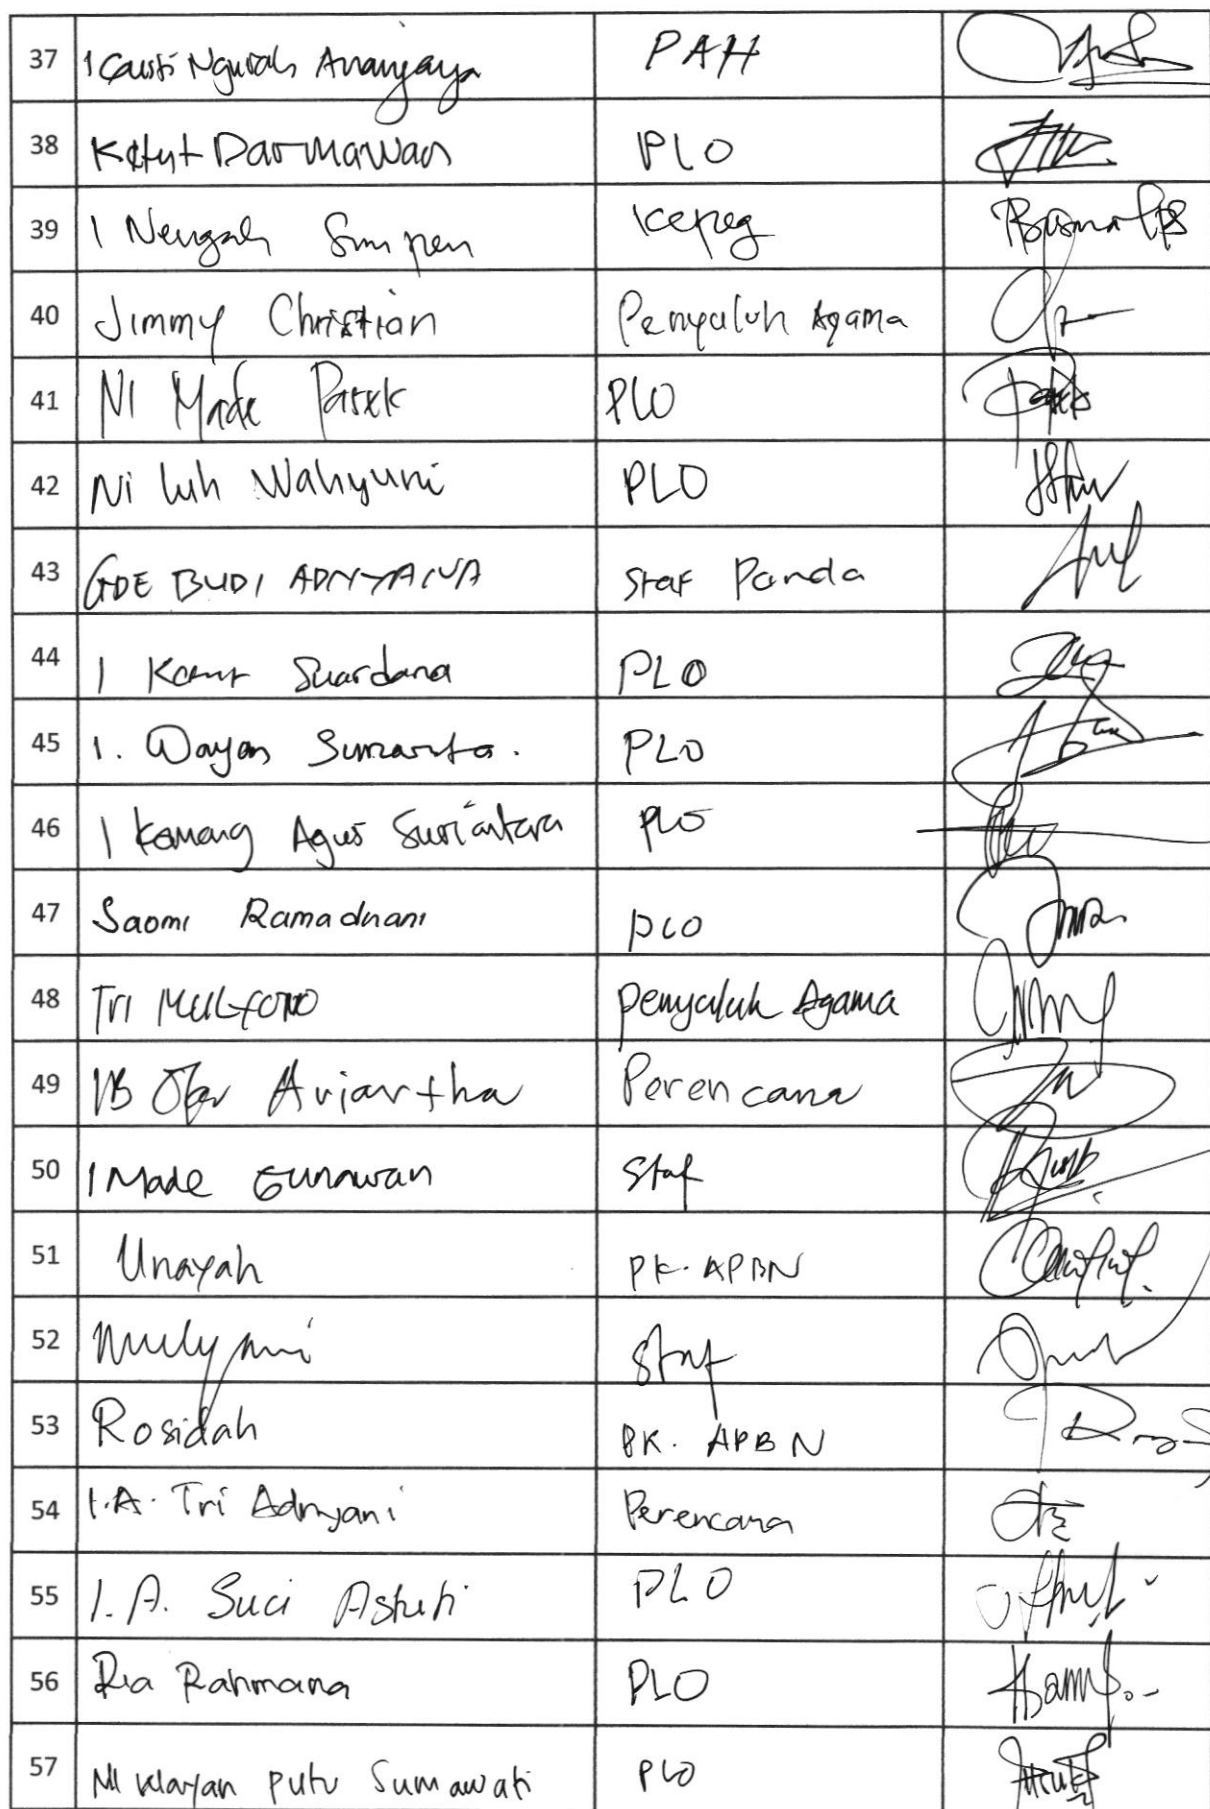 37 I Gusti Ngurah Ananjaya PAH
38 Ketut Darmawan PLO
39 I Nengah Simpen Kepeg
40 Jimmy Christian Penyuluh Agama
41 Ni Made Pasek PLO
42 Ni luh Wahyuni PLO
43 GDE BUDI ADNYANA Staf Panda
44 I Ketut Suardana PLO
45 I. Wayan Sumarta. PLO
46 I Komang Agus Suriantara PLO
47 Saomi Ramadhani PLO
48 Tri MULYONO Penyuluh Agama
49 IB Oka Ariartha Perencana
50 I Made Gunawan Staf
51 Unayah PK. APBN
52 Mulyani Staf
53 Rosidah PK. APBN
54 I.A. Tri Adnyani Perencana
55 I.A. Suci Astuti PLO
56 Ria Rahmana PLO
57 Ni Wayan Putu Sumawati PLO